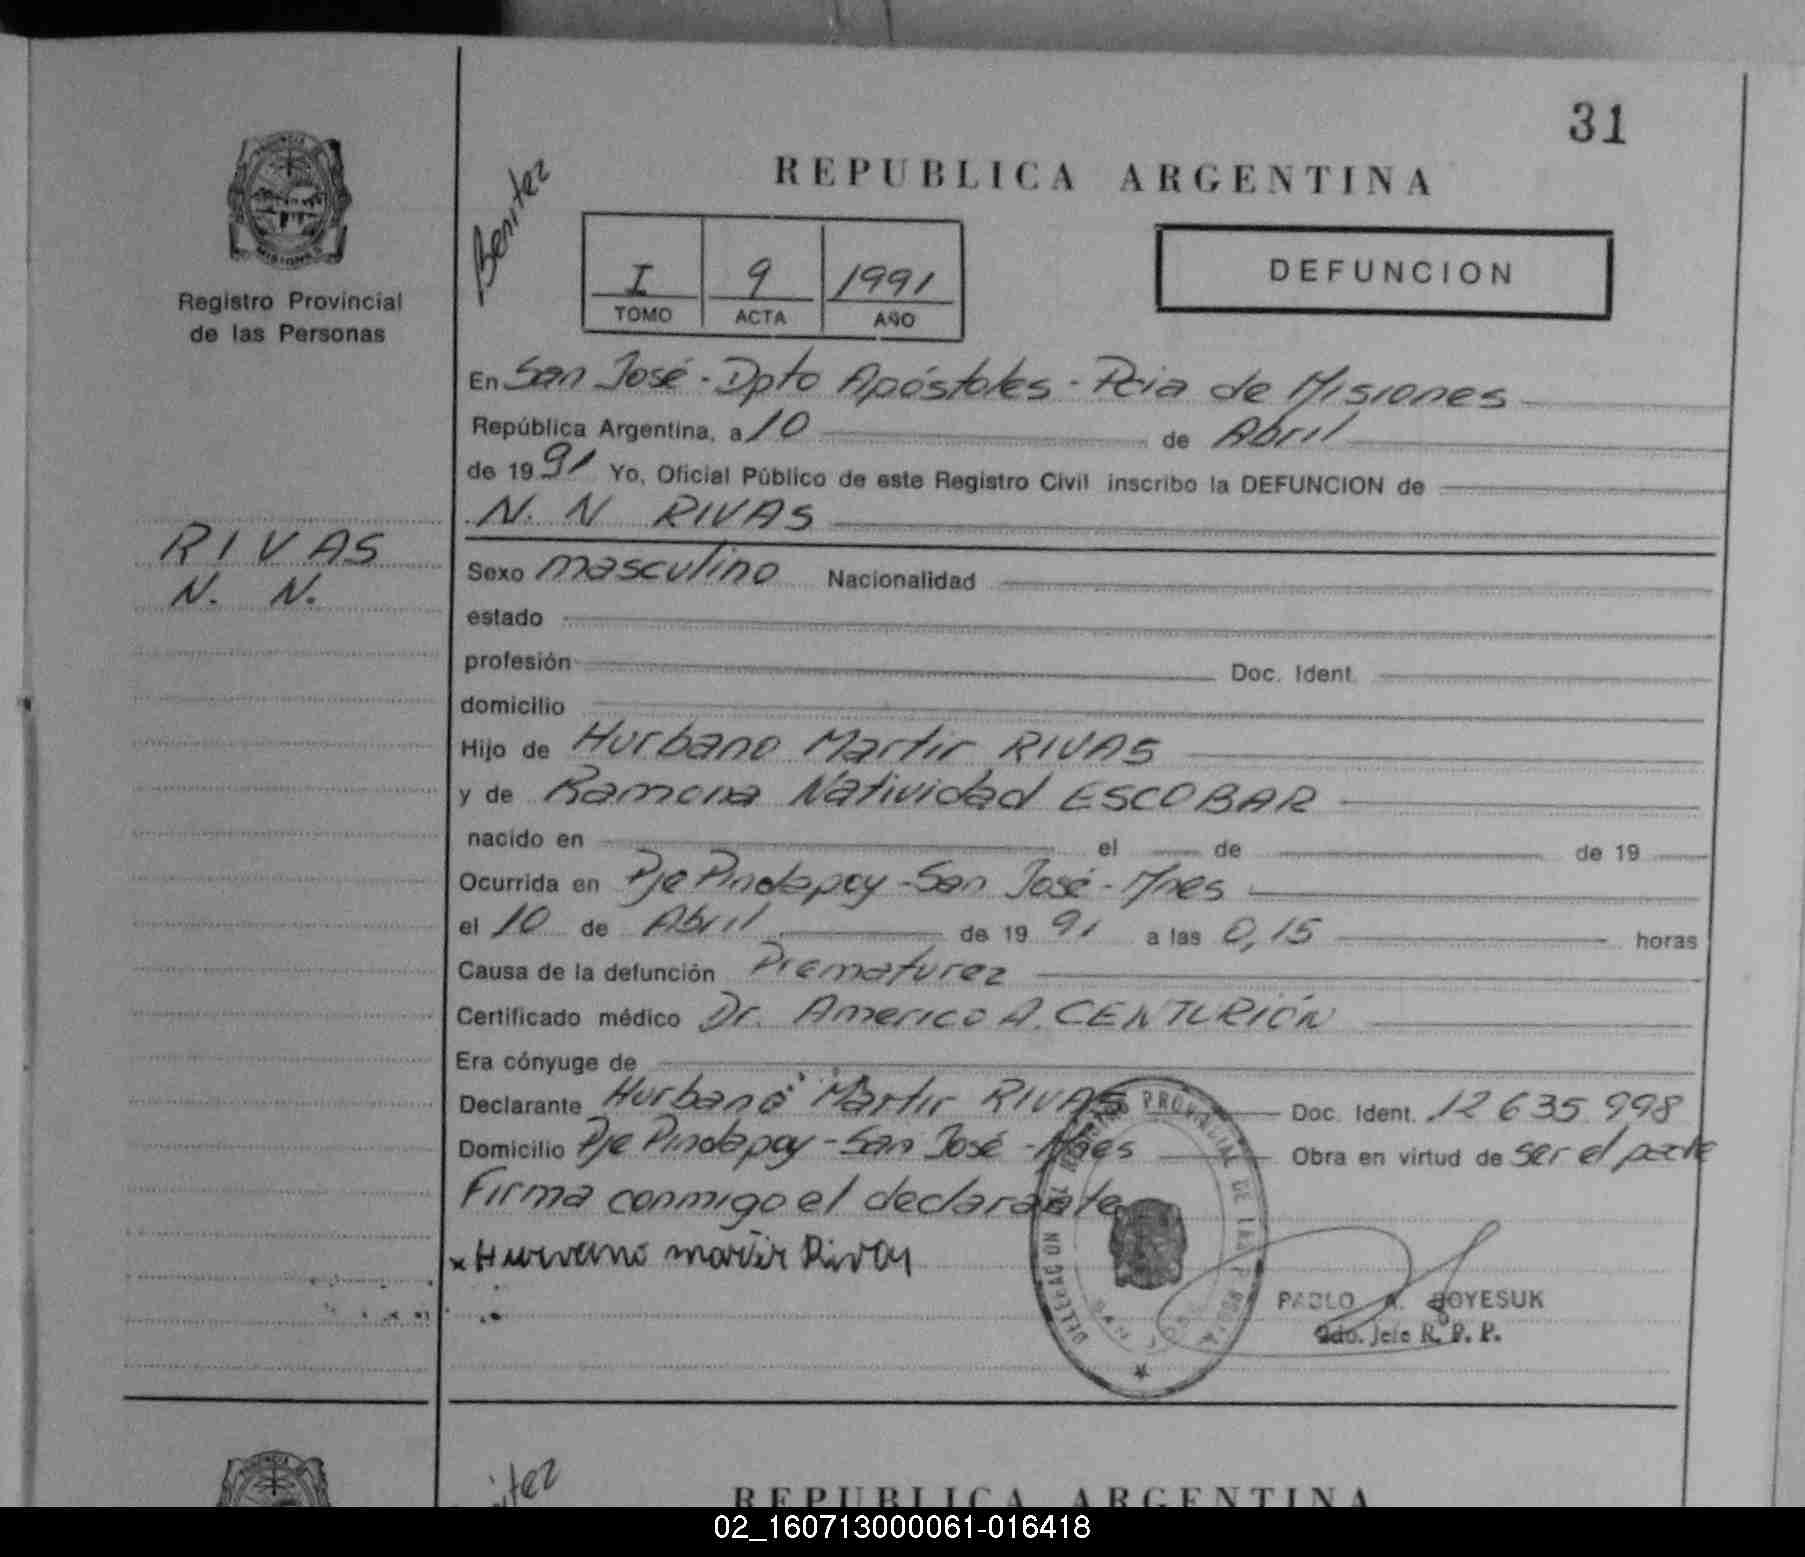 31
REPUBLICA ARGENTINA
Benitez
I 9 1991
TOMO ACTA AÑO
DEFUNCION
Registro Provincial
de las Personas
En San José - Dpto Apóstoles - Pcia de Misiones
República Argentina, a 10 de Abril
de 1991 Yo, Oficial Público de este Registro Civil inscribo la DEFUNCION de
N. N RIVAS
RIVAS
N. N.
Sexo masculino Nacionalidad
estado
profesión Doc. Ident.
domicilio
Hijo de Hurbano Martir RIVAS
y de Ramona Natividad ESCOBAR
nacido en el de de 19
Ocurrida en Pje Pindapoy - San José - Mnes
el 10 de Abril de 1991 a las 0,15 horas
Causa de la defunción Prematurez
Certificado médico Dr. Americo A. CENTURIÓN
Era cónyuge de
Declarante Hurbano Martir RIVAS Doc. Ident. 12635.998
Domicilio Pje Pindapoy - San José - Mnes Obra en virtud de ser el padre
Firma conmigo el declarante
x Hurvano martir Rivas
PABLO A. BOYESUK
Jefe R. P. P.
REPUBLICA ARGENTINA
02_160713000061-016418